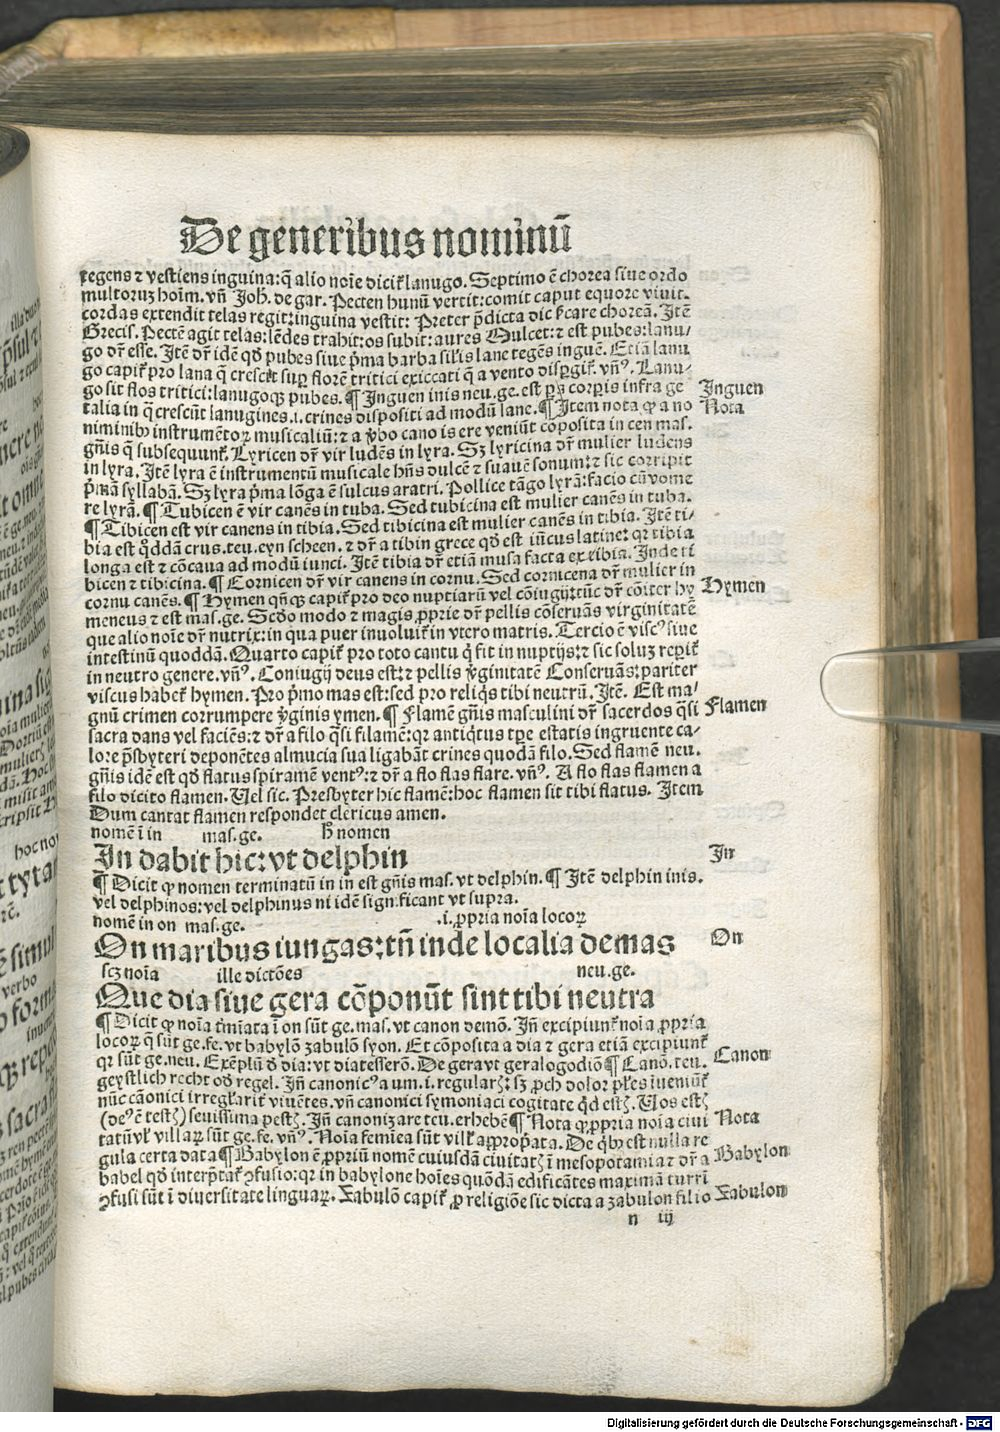 De generibus nominū
tegens ⁊ vestiens inguina: q̄ alio noīe dicit̄ lanugo. Septimo ē chorea siue ordo
multoruꝫ hoīm. vñ Joh. de gar. Pecten hunū vertit: comit caput equore viuit.
cordas extendit telas regit: inguina vestit: Preter p̄dicta dic
Grecis. Pectē agit telas: lēdes trahit: os subit: aures Mulcet: ⁊ est pubes: lanu⸗
go dr̄ esse. Itē dr̄ idē qd̄ pubes siue p̄ma barba lane tegēs inguē. Etiā lanu
go capit̄ pro lana q̄ crescit sup̄ florē tritici exiccati q̄ a vento dispgit̄. vñ⁹. Lanu⸗
go sit flos tritici: lanugoqꝫ pubes. ¶ Inguen inis neu. ge. est corpis infra ge
talia in q̄ crescūt lanugines .i. crines dispositi ad modū lane. ¶ Item nota ꝙ a no
niminibꝰ instrumētoꝝ musicaliū: ⁊ a v̄bo cano is ere veniūt cōposita in cen mas.
gn̄is q̄ subsequunt̄. Lyricen dr̄ vir ludēs in lyra. Sꝫ lyricina dr̄ mulier ludens
in lyra. Itē lyra ē instrumentū musicale hn̄s dulcē ⁊ suauē sonum: ⁊ sic corripit
p̄mā syllabā. Sꝫ lyra p̄ma lōga ē sulcus aratri. Pollice tāgo lyrā: facio cū vome
re lyrā. ¶ Tubicen ē vir canēs in tuba. Sed tubicina est mulier canēs in tuba.
¶ Tibicen est vir canens in tibia. Sed tibicina est mulier canēs in tibia. Itē ti⸗
bia est q̄ddā crus. teu. eyn scheen. ⁊ dr̄ a tibin grece qd̄ est iūcus latine: qr tibia
longa est ⁊ cōcaua ad modū iunci. Itē tibia dr̄ etiā musa facta ex tibia. Inde ti
bicen ⁊ tibicina. ¶ Cornicen dr̄ vir canens in cornu. Sed cornicena dr̄ mulier in
cornu canēs. ¶ Hymen qn̄qꝫ capit̄ pro deo nuptiarū vel cōiugij: tūc dr̄ cōiter hy
meneus ⁊ est mas. ge. Scd̄o modo ⁊ magis ꝓprie dr̄ pellis cōseruās virginitatē
que alio noīe dr̄ nutrix: in qua puer inuoluit̄ in vtero matris. Tercio ē visc⁹ siue
intestinū quoddā. Quarto capit̄ pro toto cantu q̄ fit in nuptijs: ⁊ sic soluꝫ repit̄
in neutro genere. vñ⁹. Coniugij deus est: ⁊ pellis v̄ginitatē Conseruās: pariter
viscus habet̄ hymen. Pro p̄mo mas est: sed pro reliq̄s tibi neutrū. Itē. Est ma⸗
gnū crimen corrumpere v̄ginis ymen. ¶ Flamē gn̄is masculini dr̄ sacerdos q̄si
sacra dans vel faciēs: ⁊ dr̄ a filo q̄si filamē: qr antiq̄tus tpe estatis ingruente ca⸗
lore p̄sbyteri deponētes almucia sua ligabāt crines quodā filo. Sed flamē neu.
gn̄is idē est qd̄ flatus spiramē vent⁹: ⁊ dr̄ a flo flas flare. vñ⁹. A flo flas flamen a
filo dicito flamen. Uel sic. Presbyter hic flamē: hoc flamen sit tibi flatus. Item
Dum cantat flamen respondet clericus amen.
nomē ī in mas. ge. nomen
In dabit hic: vt delphin
¶ Dicit ꝙ nomen terminatū in in est gn̄is mas. vt delphin. ¶ Itē delphin inis.
vel delphinos: vel delphinus ni idē significant vt supra.
nomē in on mas. ge. .i. ꝓpria noīa locoꝝ
On maribus iungas: tn̄ inde localia demas
scꝫ noīa ille dictōes neu. ge.
Que dia siue gera cōponūt sint tibi neutra
¶ Dicit ꝙ noīa t̄mīata ī on sūt ge. mas. vt canon demō. In̄ excipiunt̄ noīa ꝓpria
locoꝝ q̄ sūt ge. fe. vt babylō zabulō syon. Et cōposita a dia ⁊ gera etiā excipiunt̄
qr sūt ge. neu. Exēplū d̄ dia: vt diatesserō. De gera vt geralogodiō ¶ Canō. teu.
geystlich recht od̄ regel. In̄ canonic⁹ a um .i. regularꝫ: sꝫ ꝓch dolor plēs iueniūt̄
nūc cāonici irregl̄arit̄ viuētes. vñ canonici symoniaci cogitate q̄d estꝫ. Uos estꝫ
(de⁹ ē testꝫ) seuissima pestꝫ. In̄ canonizare teu. erhebē ¶ Nota ꝙ ꝓpria noīa ciui
tatū vl̓ villaꝝ sūt ge. fe. vñ⁹. Noīa femīea sūt vill̓ approp̄ata. De q̄bꝫ est nulla re
gula certa data ¶ Babylon ē ꝓpriū nomē cuiusdā ciuitatꝫ ī mesopotamia ⁊ dr̄ a
babel qd̄ interp̄tat̄ ꝯfusio: qr in babylone hoīes quōdā edificātes maximā turri
ꝯfusi sūt ī diuersitate linguaꝝ. Zabulō capit̄ ꝓ religiōe sic dicta a zabulon filio
n iij
Inguen
Nota
Hymen
Flamen
In
On
Canon
Nota
Babylon
Zabulon
Digitalisierung gefördert durch die Deutsche Forschungsgemeinschaft - DFG